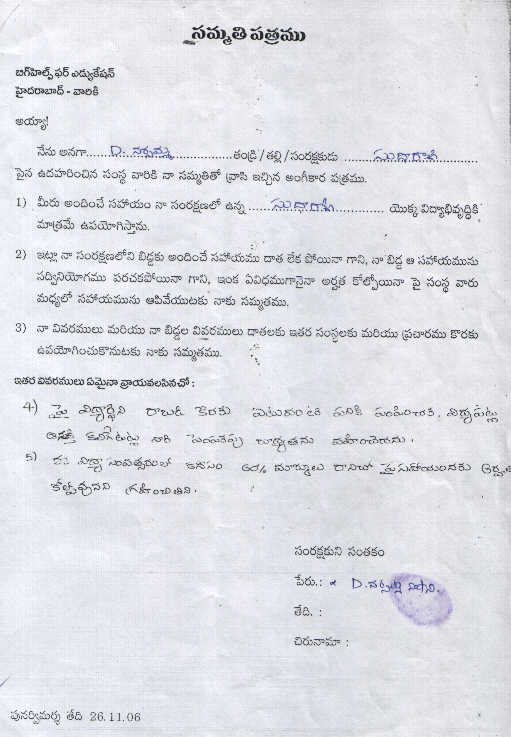 సమ్మతి పత్రము
బిగ్‌హెల్ప్ ఫర్ ఎడ్యుకేషన్
హైదరాబాద్ - వారికి
అయ్యా!
నేను అనగా...... D. నర్సమ్మ ................తండ్రి / తల్లి / సంరక్షకుడు ........సుధారాణి..........
పైన ఉదహరించిన సంస్థ వారికి నా సమ్మతితో వ్రాసి ఇచ్చిన అంగీకార పత్రము.
1) మీరు అందించే సహాయం నా సంరక్షణలో ఉన్న ......సుధారాణి............. యొక్క విద్యాభివృద్ధికి
మాత్రమే ఉపయోగిస్తాను.
2) ఇట్లా నా సంరక్షణలోని బిడ్డకు అందించే సహాయము దాత లేక పోయినా గాని, నా బిడ్డ ఆ సహాయమును
సద్వినియోగము పరచకపోయినా గాని, ఇంక ఏవిధముగానైనా అర్హత కోల్పోయినా పై సంస్థ వారు
మధ్యలో సహాయమును ఆపివేయుటకు నాకు సమ్మతము.
3) నా వివరములు మరియు నా బిడ్డల వివరములు దాతలకు ఇతర సంస్థలకు మరియు ప్రచారము కొరకు
ఉపయోగించుకొనుటకు నాకు సమ్మతము.
ఇతర వివరములు ఏమైనా వ్రాయవలసినచో :
4) పై విద్యార్థిని రాబడి కొరకు ఎటువంటి పనికి పంపించక, విద్యపట్ల
ఆసక్తి కలిగేటట్లు బాధ్యతను వహించెదను.
5) ఈ విద్యా సంవత్సరంలో కనీసం 60% మార్కులు రానిచో పై సహాయమునకు అర్హత
కోల్పోవునని గ్రహించితిని.
సంరక్షకుని సంతకం
పేరు. : D.
తేది. :
చిరునామా :
పునర్విమర్శ తేది 26.11.06